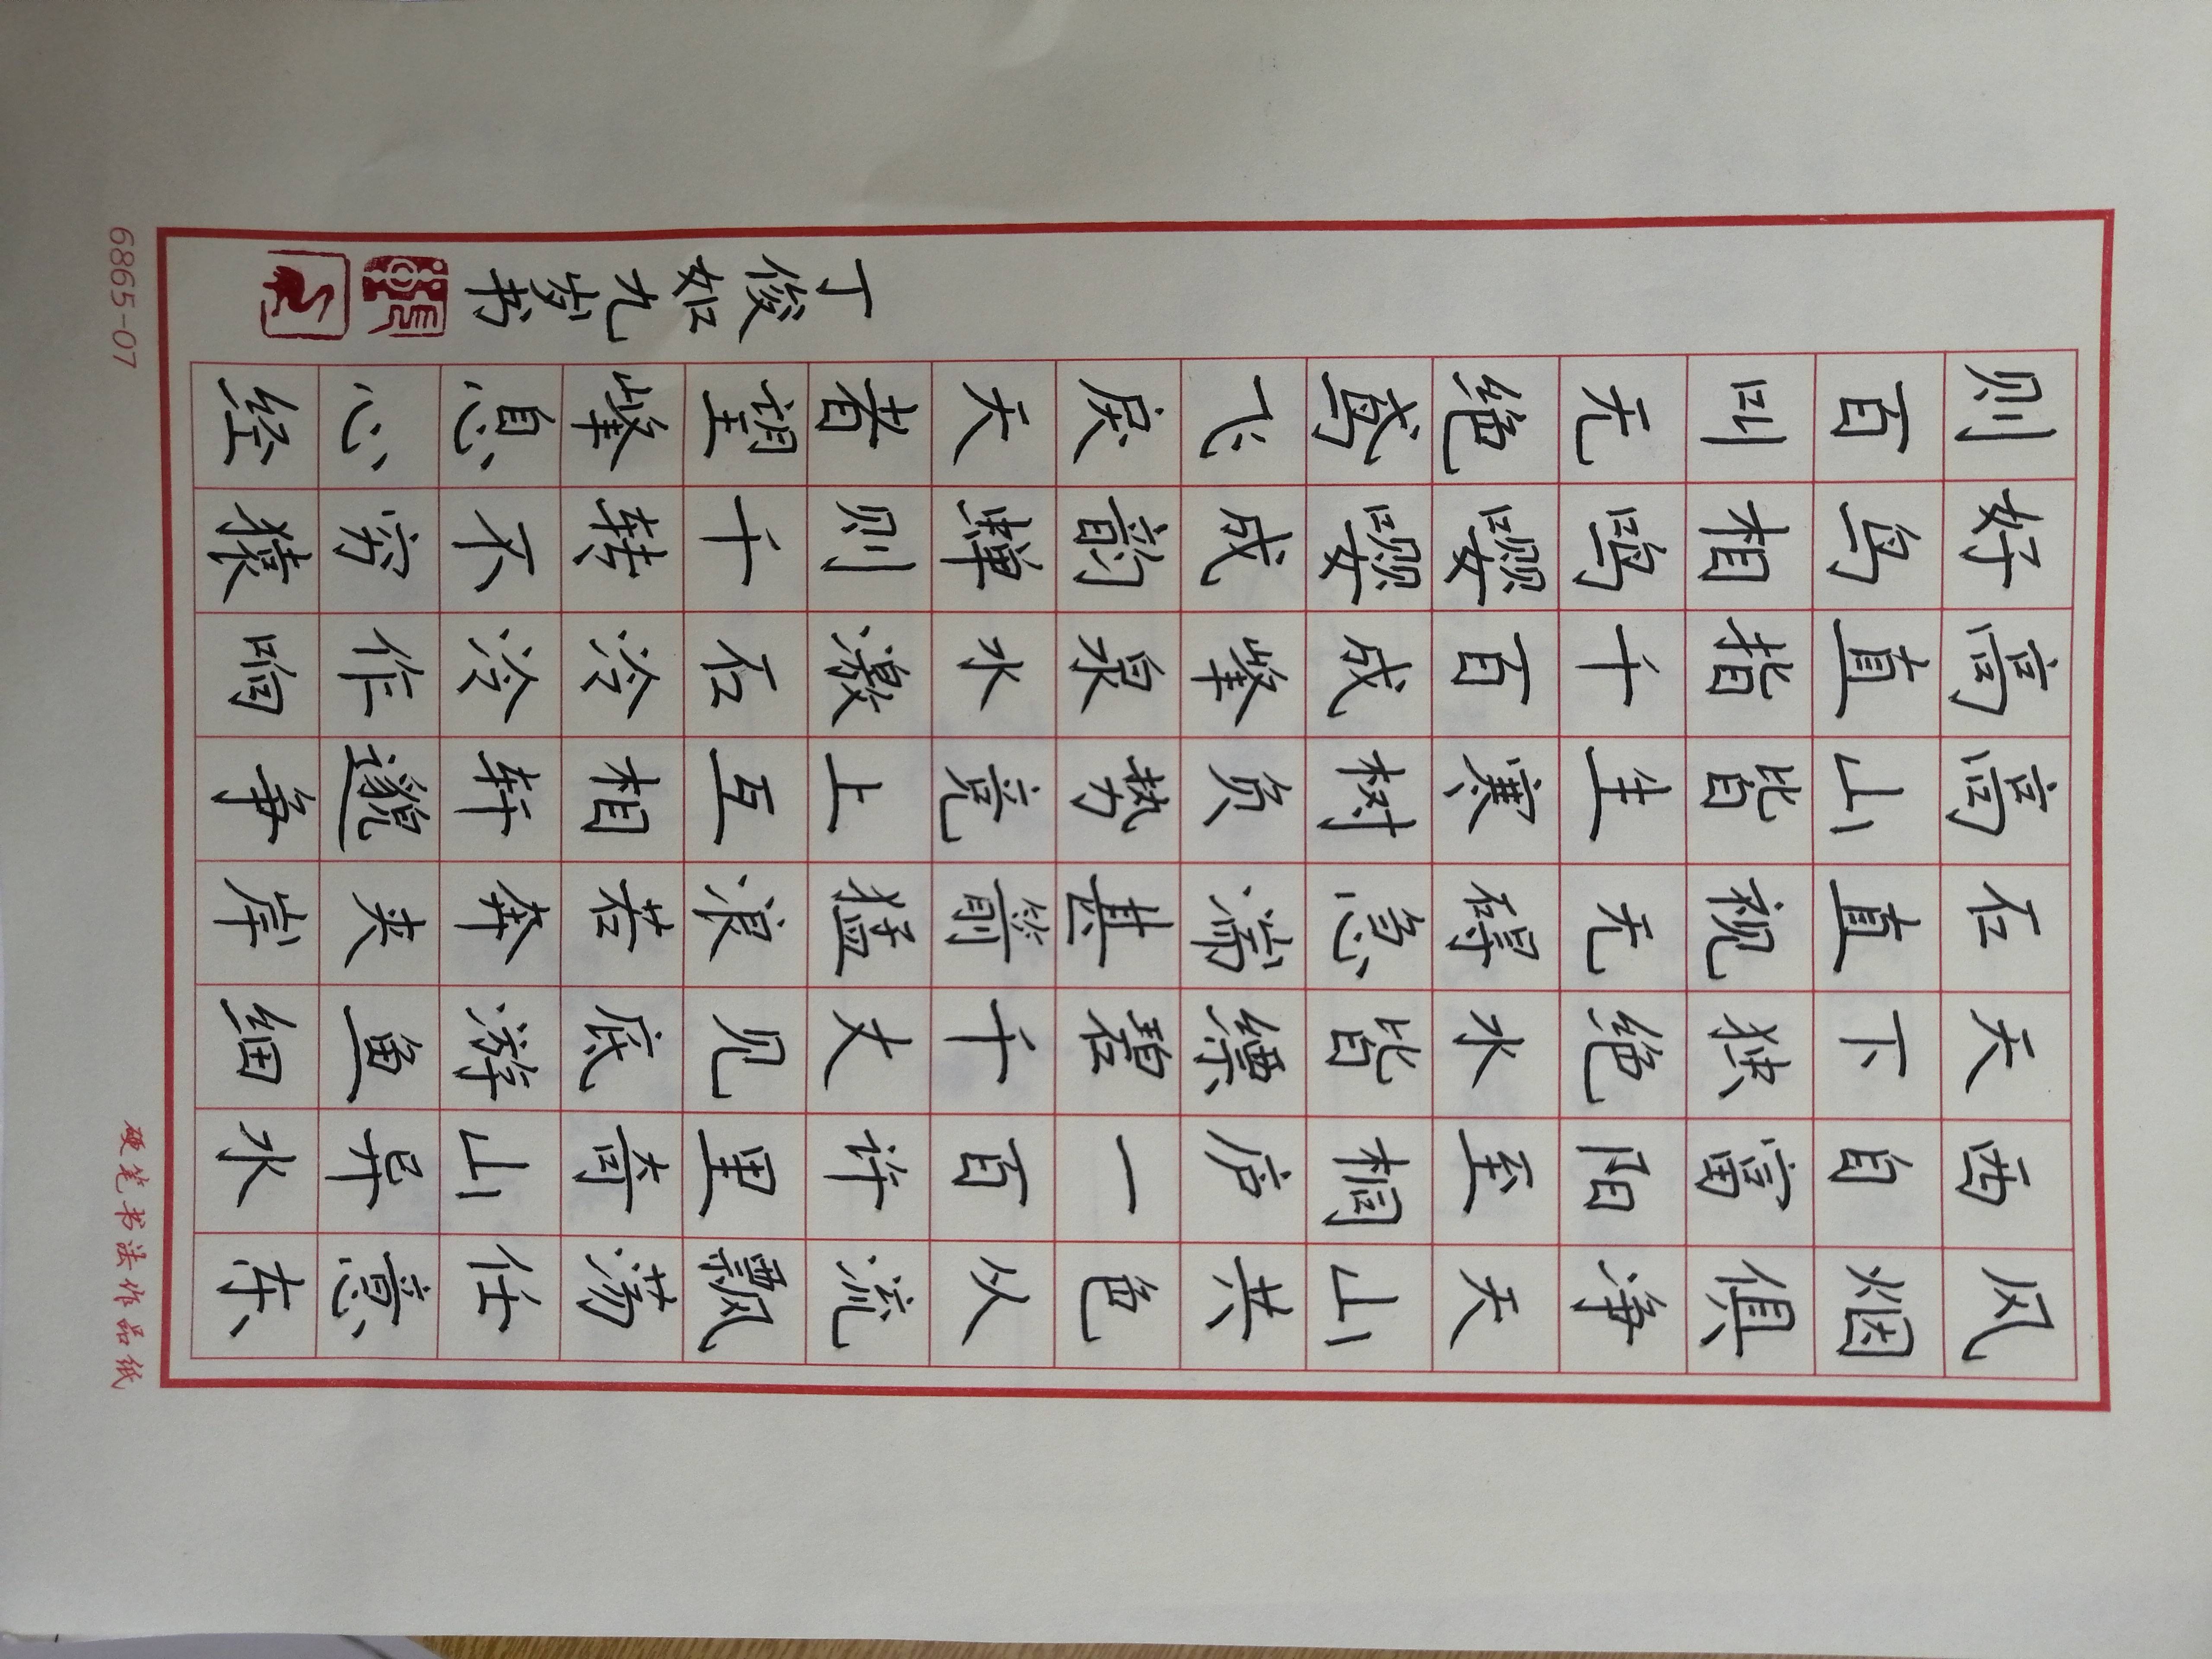 风烟俱净天山共色从流飘荡任意东
西自富阳至桐庐一百许里奇山异水
天下独绝水皆缥碧千丈见底游鱼细
石直视无碍急湍甚箭猛浪若奔夹岸
高山皆生寒树负势竞上互相轩邈争
高直指千百成峰泉水激石泠泠作响
好鸟相鸣嘤嘤成韵蝉则千转不穷猿
则百叫无绝鸢飞戾天者望峰息心经
丁俊如九岁书
硬笔书法作品纸
68865-07